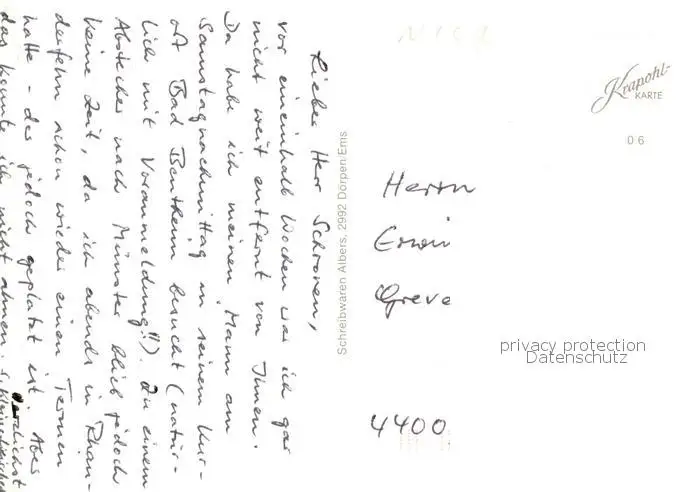 Lieber Herr Schronen,
vor eineinhalb Wochen war ich gar
nicht weit entfernt von Ihnen.
Da habe ich meinen Mann am
Samstagnachmittag in seinem Kur-
ort Bad Bentheim besucht (natür-
lich mit Voranmeldung!!). Zu einem
Abstecher nach Münster blieb jedoch
keine Zeit, da ich abends in Rhau-
derfehn schon wieder einen Termin
hatte - der jedoch geplatzt ist. Aber
das konnte ich nicht ahnen.
Herzlichst
Schreibwaren Albers, 2992 Dörpen/Ems
Krapohl-
KARTE
06
Herrn
Erwin
Greve
privacy protection
Datenschutz
4400